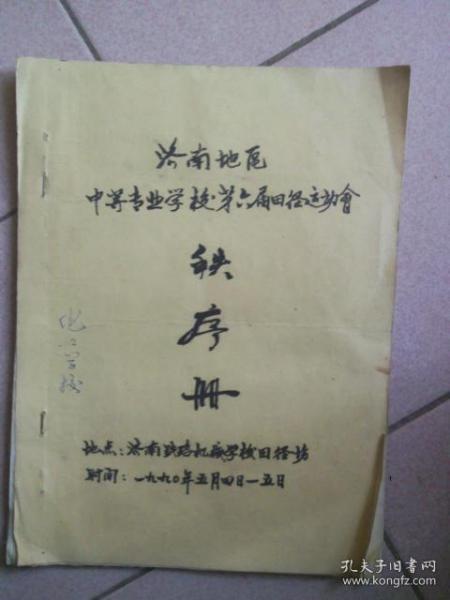 济南地区
中等专业学校第六届田径运动會
秩
序
册
化工学校
地点：济南铁路机械学校田径场
时间：一九九〇年五月四日一五日
孔夫子旧书网
www.kongfz.com